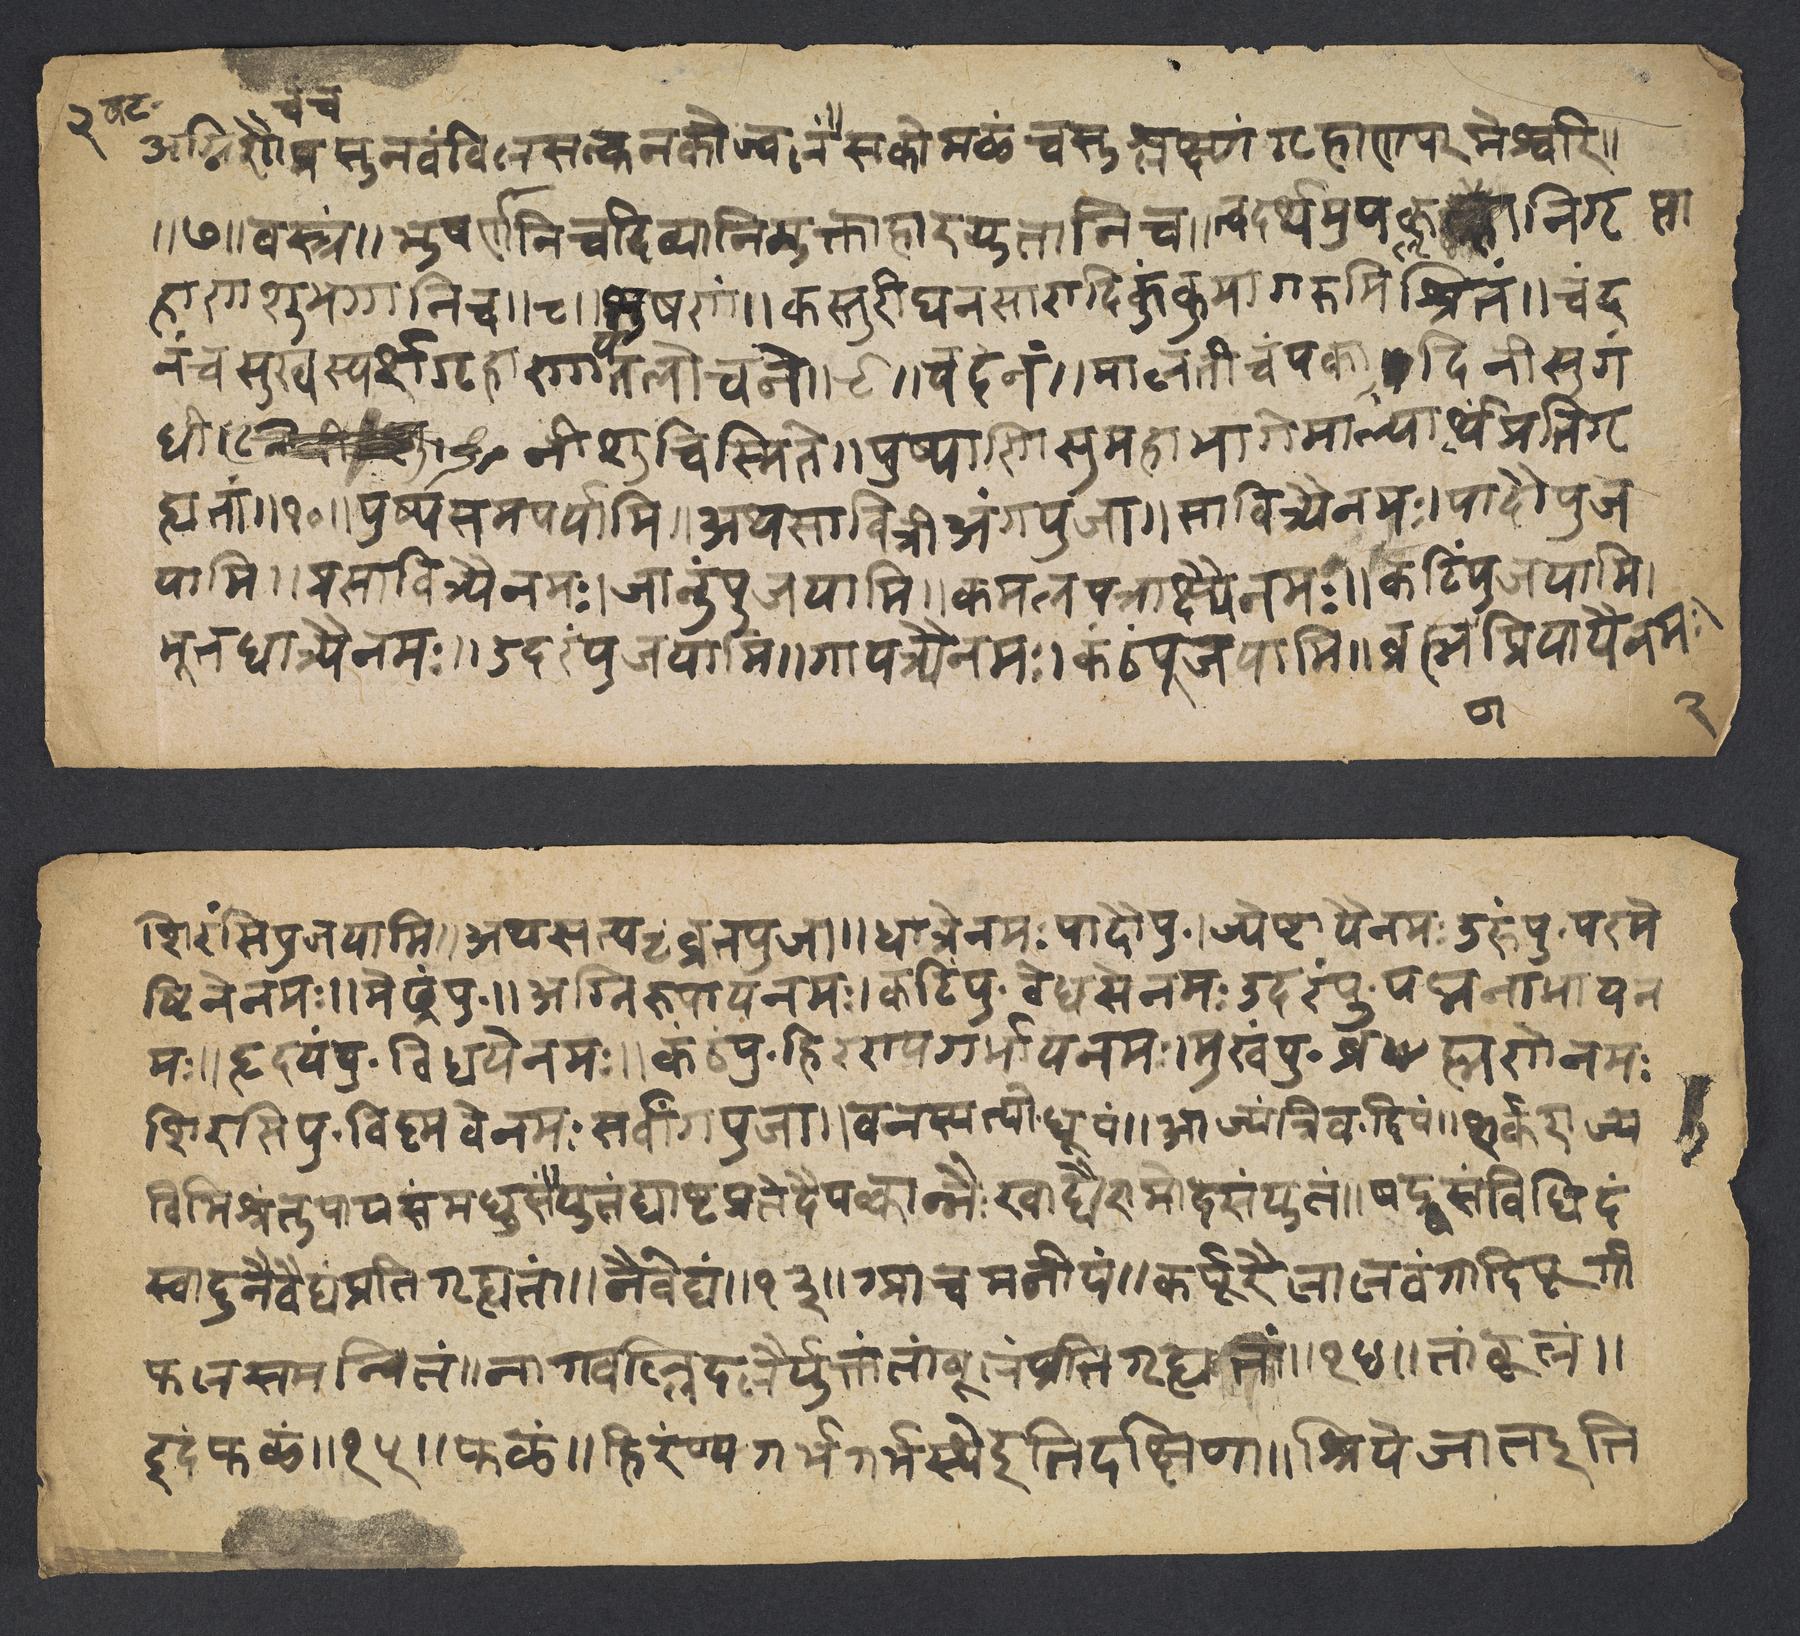 २ वट॰
च च
अग्निशौप्रसुनवंविलसत्कनकोज्वलं॥सकोमळंचसुश्लक्ष्णंगृहाणपरमेश्वरि॥
॥७॥वस्त्रं॥भुषणानिचदिव्यानिमुक्ताहारयुतानिच॥त्वदर्थमुपकॢ निगृ ह्ना
हाणशुभगानिच॥८॥भुषणं॥कस्तुरीघनसारादिकुंकुमागरुमिश्रितं॥चंद
नंचसुखस्पर्शंगृहाण लोचने॥९॥चदंनं॥मालतीचंपका दिनीसुगं
धी नीशुचिस्मिते॥पुष्पाणिसुमहाभागेमाल्यार्थंप्रतिगृ
ह्यतां॥१०॥पुष्पंसमपर्यामि॥अथसावित्रीअंगपुजा॥सावित्र्यैनमः।पादौपुज
यामि॥प्रसावित्र्यैनमः।जानुंपुजयामि॥कमलपत्राक्ष्यैनमः॥कटिंपुजयामि।
भूतधात्र्यैनमः॥उदरंपुजयामि॥गायत्र्यैनमः।कंठंपूजयामि॥ब्रह्मप्रियायैनमः
ण २
शिरंसिपुजयामि॥अथसत्यवृधनपुजा॥धात्रेनमःपादौपु॰।ज्येष्टायैनमःउरुंपु॰परमे
ष्टिनेनमः॥मेढ्रंपु॰॥अग्निरूपायनमः।कटिंपु॰वेधसेनमःउदरंपु॰पद्मनाभायन
मः॥हृदयंपु॰विधयेनमः॥कंठंपु॰हिरण्यगर्भायनमः।मुखंपु॰ब्रह्मणेनमः
शिरसिपु॰विष्णवेनमःसर्वांगपुजा॥वनस्पत्यो॰धूपं॥आज्यंत्रिव॰दिपं॥शर्करा ज्य
विमिश्रंतुपायसंमधुसंयुतं द्याष्टघृतंदैपक्वान्नैःस्वाद्यैरामोदसंयुतं॥षड्रसंविधिदं
स्वादुनैवैद्यंप्रतिगृह्यतां॥नैवेद्यं॥१३॥आचमनीयं॥कर्पूरैलालवंगादिपूगी
फलसमन्वितं॥नागवल्लिदलैर्युक्तंतांबूलंप्रतिगृह्यतां॥१४॥तांबूलं॥
इदंफळं॥१५॥फळं॥हिरंण्यगर्भगर्भस्थेइतिदक्षिणा॥श्रियेजातइति